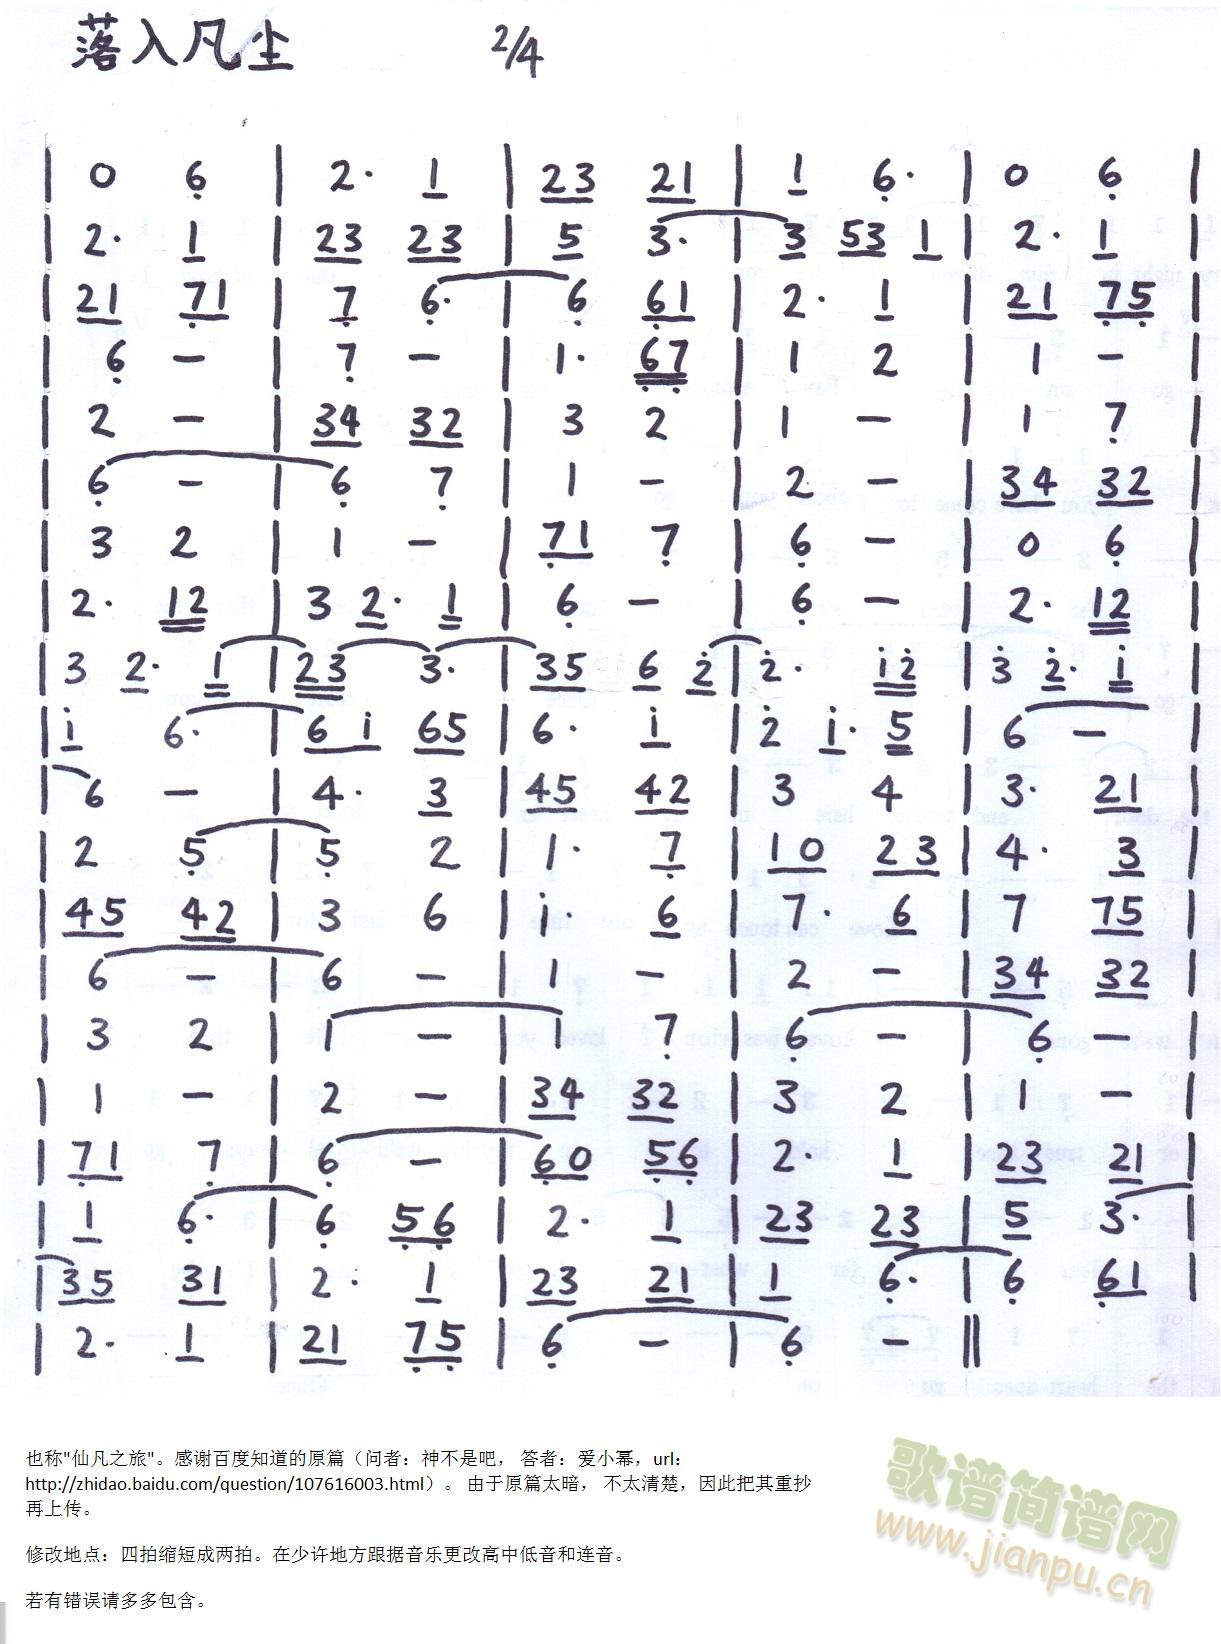 落入凡尘 2/4
| 0 6̣ | 2· 1 | 23 21 | 1 6̣· | 0 6̣ |
| 2· 1 | 23 23 | 5 3· | 3 53 1 | 2· 1 |
| 21 7̣1 | 7̣ 6̣· | 6̣ 6̣1 | 2· 1 | 21 7̣5̣ |
| 6̣ – | 7̣ – | 1· 6̣7̣ | 1 2 | 1 – |
| 2 – | 34 32 | 3 2 | 1 – | 1 7̣ |
| 6̣ – | 6̣ 7̣ | 1 – | 2 – | 34 32 |
| 3 2 | 1 – | 7̣1 7̣ | 6̣ – | 0 6̣ |
| 2· 12 | 3 2· 1 | 6̣ – | 6̣ – | 2· 12 |
| 3 2· 1 | 23 3· | 35 6 2̇ | 2̇· 1̇2̇ | 3̇ 2̇· 1̇ |
| 1̇ 6· | 6 1̇ 65 | 6· 1̇ | 2̇ 1̇· 5 | 6 – |
| 6 – | 4· 3 | 45 42 | 3 4 | 3· 21 |
| 2 5̣ | 5̣ 2 | 1· 7̣ | 10 23 | 4· 3 |
| 45 42 | 3 6 | 1̇· 6 | 7· 6 | 7 75 |
| 6 – | 6 – | 1 – | 2 – | 34 32 |
| 3 2 | 1 – | 1 7̣ | 6̣ – | 6̣ – |
| 1 – | 2 – | 34 32 | 3 2 | 1 – |
| 7̣1 7̣ | 6̣ – | 6̣0 5̣6̣ | 2· 1 | 23 21 |
| 1 6̣· | 6̣ 5̣6̣ | 2· 1 | 23 23 | 5 3· |
| 35 31 | 2· 1 | 23 21 | 1 6̣· | 6̣ 6̣1 |
| 2· 1 | 21 7̣5̣ | 6̣ – | 6̣ – ||
也称"仙凡之旅"。感谢百度知道的原篇（问者：神不是吧， 答者：爱小幂，url：
http://zhidao.baidu.com/question/107616003.html）。 由于原篇太暗， 不太清楚，因此把其重抄
再上传。
修改地点：四拍缩短成两拍。在少许地方跟据音乐更改高中低音和连音。
若有错误请多多包含。
歌谱简谱网
www.jianpu.cn